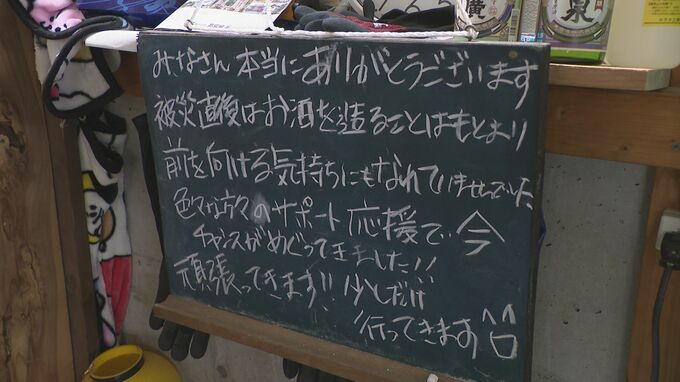 みなさん 本当に ありがとうございます
被災直後はお酒を造ることはもとより
前を向ける気持ちにもなれていませんでした
色々な方々のサポート 応援で 今
チャンスがめぐってきました!!
頑張ってきます!! 少しだけ
行ってきます^^
廣
泉